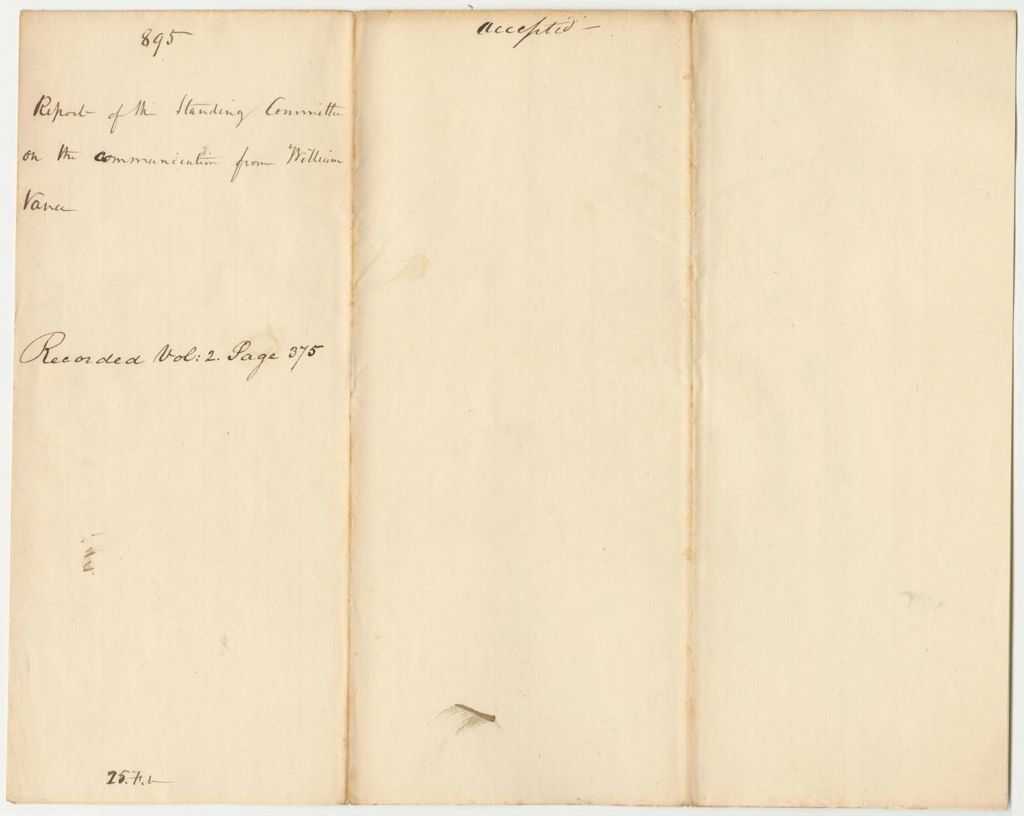 895
Report of the Standing Committee
on the communication from William
Vance
Recorded Vol: 2. Page 375
25. Feb
accepted –